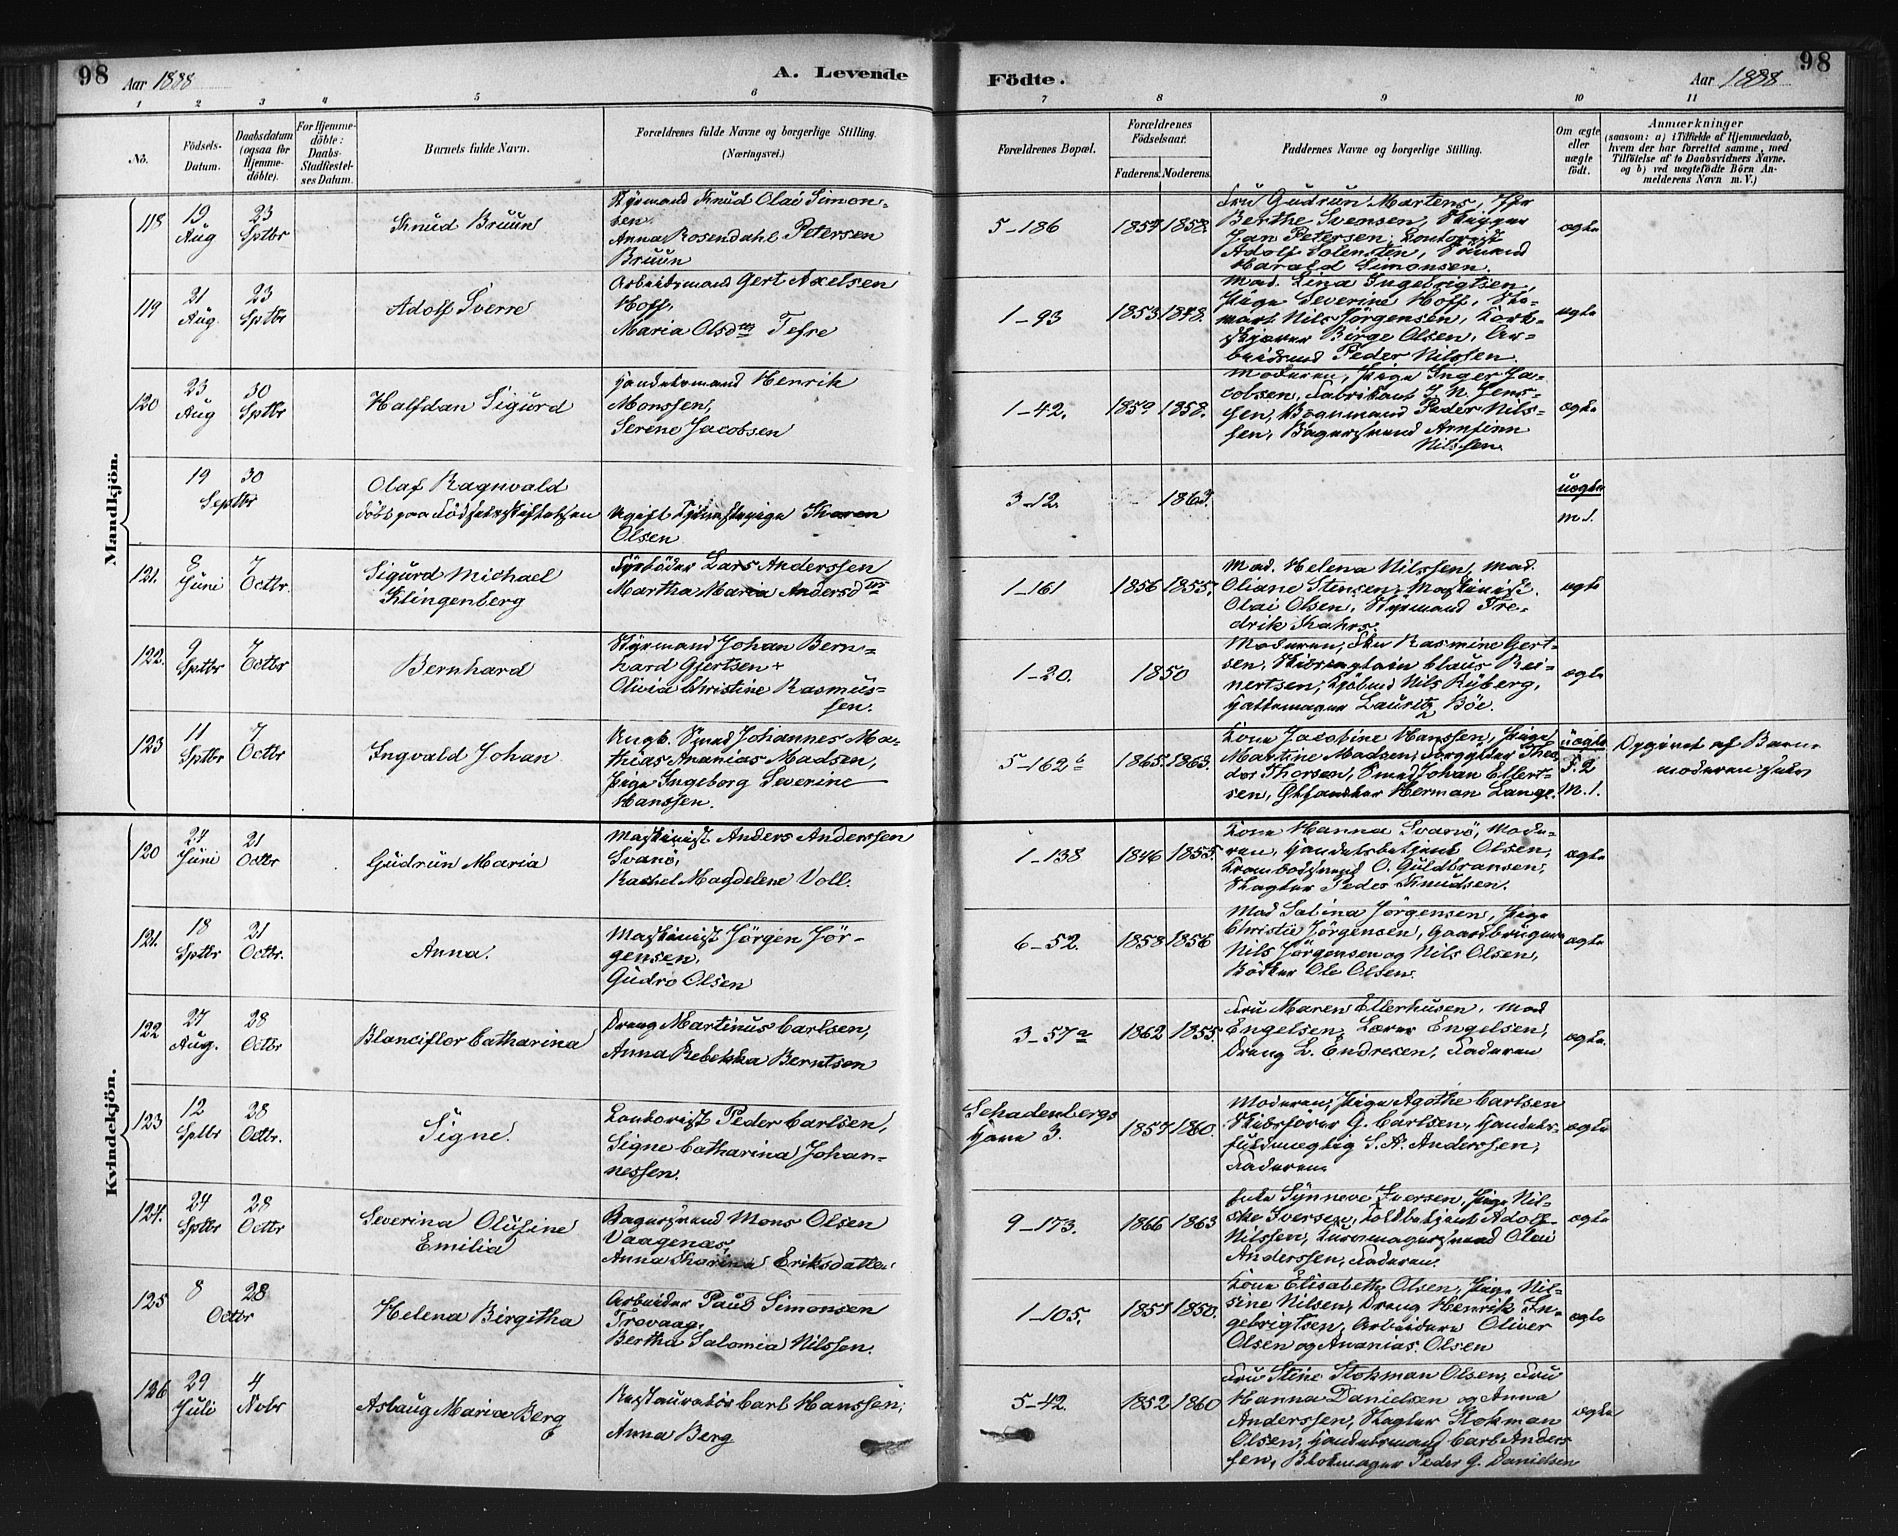 98 Aar 1888 A. Levende
1 2 3 4 5 6
No. Födsels-Datum. Daabsdatum (ogsaa for Hjemme-döbte). For Hjemme-döbte: Daabs-Stadfæstel-ses Datum. Barnets fulde Navn. Forældrenes fulde Navne og borgerlige Stilling. (Næringsvei.)
Födte. Aar 1888 98
7 8 9 10 11
Forældrenes Bopæl. Forældrenes Födselsaar. Faderens. Moderens. Faddernes Navne og borgerlige Stilling. Om ægte eller uægte födt. Anmærkninger
(saasom: a) i Tilfælde af Hjemmedaab, hvem der har forrettet samme, med Tilföielse af to Daabsvidners Navne. og b) ved uægtefödte Börn An-melderens Navn m. V.)
Mandkjön.
118 19 Aug 23 Sptbr Knud Bruun
Styrmand Knud Olai Simon-
sen
Anna Rosendahl Petersen
Bruun
5-186 1858
Fru Gudrun Martens,
Berthe Svensen,
Jan Petersen, Kontorist
Adolf
Harald Simonsen.
ægte
119 21 Aug. 23 Sptbr Adolf Sverre
Arbeidsmand Gert Axelsen
Hoff,
Maria Olsdtr Tefre
1-93 1853 1848.
Mad. Lina Ingebrigtsen,
Pige Severine Hoff,
Nils Jörgensen,
Börge Olsen, Ar-
beidsmd Peder Nilssen.
ægte
120 23 Aug 30 Sptbr Halfdan Sigurd
Handelsmand Henrik
Monssen,
Serine Jacobsen
1-42. 1859 1858.
Moderen, Pige Inger Ja-
cobsen, Fabrikant J. N. Jens-
sen, Peder Nils-
sen, Bagersvend Arnfinn
Nilssen
ægte
19 30 Septbr Olaf Ragnvald
döbt paa Födselsstiftelsen
Ugift Tjenestepige Karen
Olsen
3-12. 1863.
uægte
m. 1.
121. 8 Juni 7 Octbr. Sigurd Michael
Klingenberg
Fyrböder Lars Anderssen
Martha Maria Andersdtr
1-161 1856 1855.
Mad. Helena Nilssen, Mad.
Oliane Stensen, Maskinist
Olai Olsen, Styrmand Fre-
drik
ægte
122. 9 Sptbr 7 Octbr Bernhard
Styrmand Johan Bern-
hard Gjertsen +
Olivia Christine Rasmus-
sen.
1-20. 1850
Moderen, Fru Rasmine Gert-
sen, Skibscaptain Claus Rei-
nertsen, Kjöbmd Nils Ryberg,
Hattemager Lauritz Böe.
ægte
123 11 Sptbr 7 Octbr Ingvald Johan
Ungk. Smed Johannes Ma-
thias Ananias Madsen,
Pige Ingeborg Severine
Hanssen.
5-162b 1865. 1863.
Kone Jacobine Hanssen, Pige
Martine Madsen, Forgylder Theo-
dor Thorsen, Smed Johan Ellert-
sen, Herman Lange.
uægte
F. 2
m. 1.
Opgivet af Barne-
moderen selv
Kvindekjön.
120 24 Juni 21 Octbr Gudrun Maria
Maskinist Anders Anderssen
Svanö,
Rachel Magdelene Voll.
1-138 1846 1855.
Kone Hanna Svanö, Mode-
ren, Handelsbetjent Olsen,
O. Guldbransen,
Slagter Peder Knudsen.
ægte
121. 18 Sptbr 21 Octbr. Anna.
Maskinist Jörgen Jör-
gensen,
Gudro Olsen
6-52. 1858 1856
Mad Salina Jörgensen, Pige
Christie Jörgensen, Gaardbruger
Nils Jörgensen og Nils Olsen,
Bödker Ole Olsen.
ægte
122 27 Aug. 28 Octbr Blanciflor Catharina
Dreng Martinus Carlsen,
Anna Rebekka Berntsen
3-57a 1862 1855.
Fru Maren Ellerhusen, Mad
Engelsen, Lærer Engelsen,
Dreng L. Endresen, Faderen
ægte.
123 12 Sptbr 28 Octbr. Signe.
Kontorist Peder Carlsen,
Signe Catharina Johan-
nessen.
Schadenbergs
Have 3. 1857 1860.
Moderen, Pige Agothe Carlsen
Skibsförer G. Carlsen, Handels-
fuldmægtig S. A. Anderssen,
Faderen
ægte
124. 24 Sptbr 28 Octbr Severina Olufine
Emilia
Bagersvend Mons Olsen
Vaagenæs,
Anna Karina Eriksdatter
9-173. 1866 1863
Enke Synneve Iversen, Pige Nil-
ske Iversen, Toldbetjent Adolf
Nilssen, Olai
Anderssen, Faderen.
ægte
125 8 28 Octbr Helena Birgitha
Arbeider Paul Simonsen
Trovaag,
Bertha Salomia Nilssen.
1-105. 1855 1850.
Kone Elisabeth Olsen, Pige Nil-
sine Nilsen, Dreng Henrik In-
gebrigtsen, Arbeidere Oliver
Olsen og Ananias Olsen
ægte
126 29 Juli 4 Nvbr Aslaug Maria Berg
Restauratör Carl Hanssen,
Anna Berg
5-42. 1852 1860
Fru Stine Stokman Olsen, Fru
Hanna Danielsen og Anna
Anderssen, Slagter Stokman
Olsen, Handelsmand Carl Anders-
sen, Blokmager Peder G. Danielsen
ægte